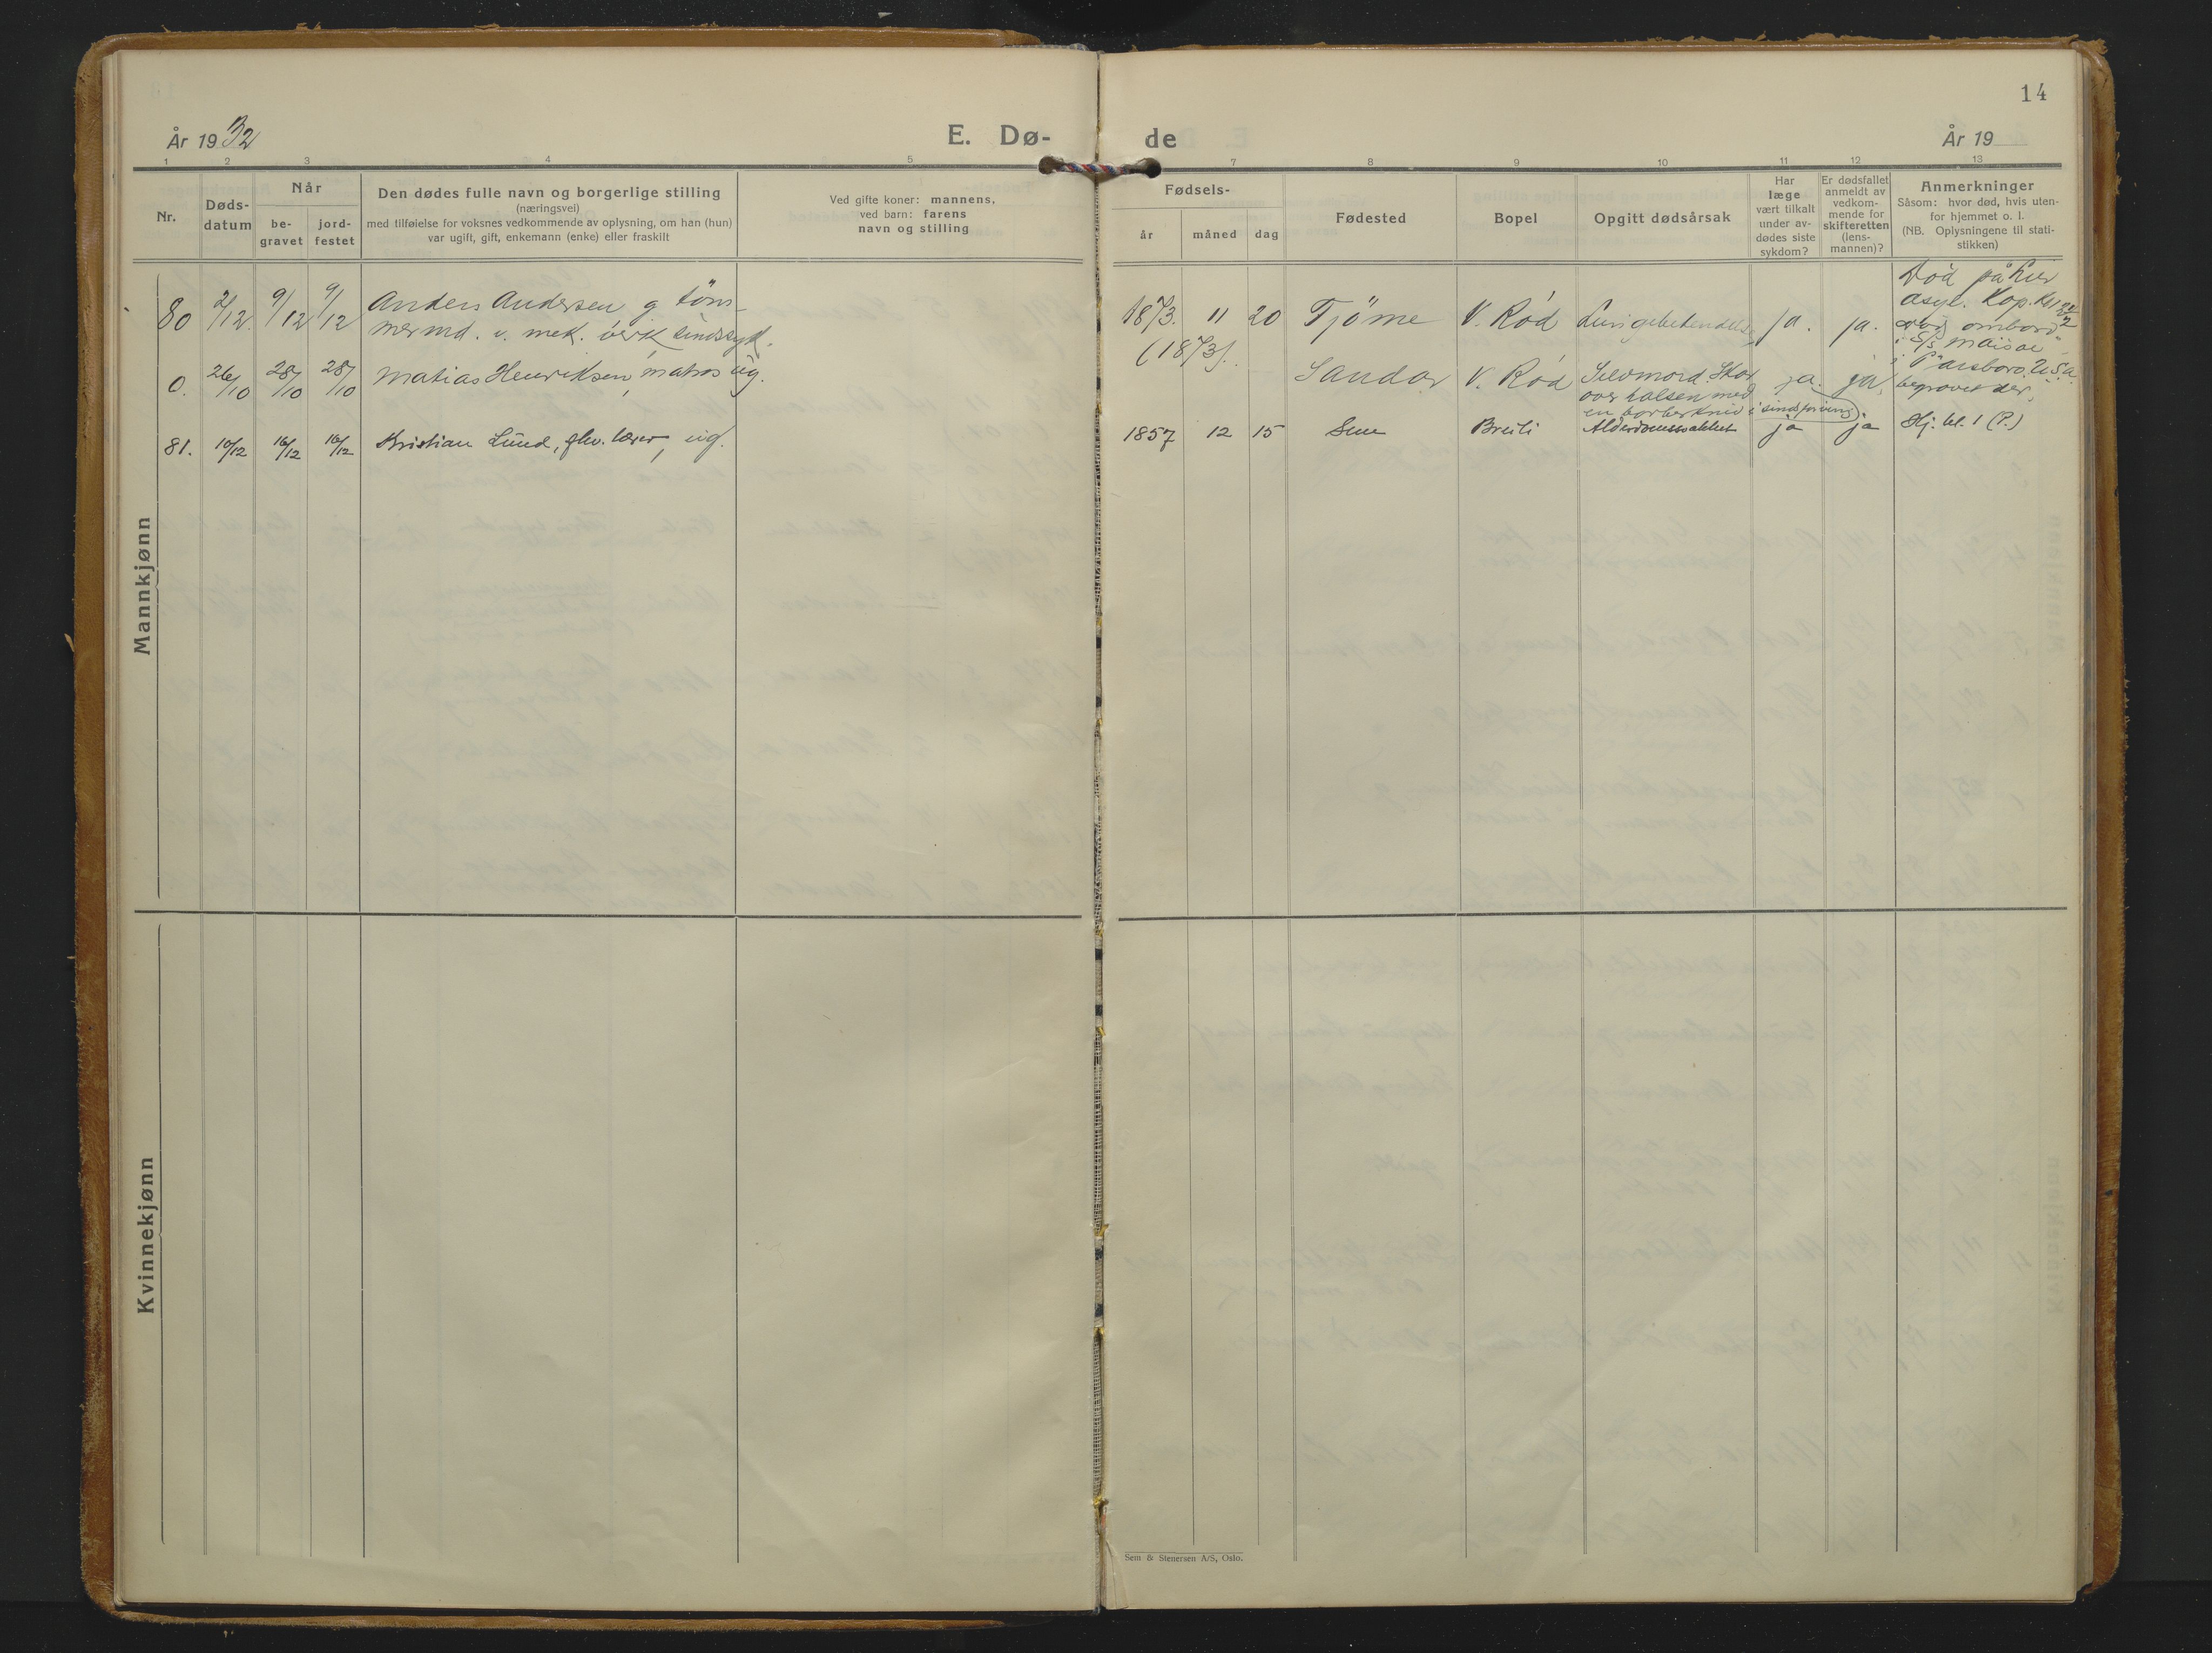 14
År 1932
E. Dø-
de
År 19
1 2 3 4 5
7 8 9 10 11 12 13
Nr.
Døds-
datum
Når
be-
gravet
jord-
festet
Den dødes fulle navn og borgerlige stilling
(næringsvei)
med tilføielse for voksnes vedkommende av oplysning, om han (hun)
var ugift, gift, enkemann (enke) eller fraskilt
Ved gifte koner: mannens,
ved barn: farens
navn og stilling
Fødsels-
år
måned
dag
Fødested
Bopel
Opgitt dødsårsak
Har
læge
vært tilkalt
under av-
dødes siste
sykdom?
Er dødsfallet
anmeldt av
vedkom-
mende for
skifteretten
(lens-
mannen)?
Anmerkninger
Såsom: hvor død, hvis uten-
for hjemmet o. l.
(NB. Oplysningene til stati-
stikken)
Mannkjønn
80 2/12. 9/12 9/12 Anders Andersen g. töm-
mermd. v. mek. verk sindssyk.
1873. 11 20 Tjöme V. Rød Lungebetendelse ja. ja.
(1873).
Död på Lier
asyl. Kap.
0. 26/10 28/10 28/10 Matias Henriksen, matros ug.
Sandar V. Rød Selvmord. Skar ja. ja.
over halsen med
en barberkniv i sindsforvirring.
død ombord
i S/S
i U.S.a.
begravet der.
81. 10/12 16/12 16/12 Kristian Lund, fhv. lærer, ug.
1857 12 15 Sem Breili Alderdomssvakhet ja ja Hj. bl. 1 (P.)
Kvinnekjønn
Sem & Stenersen A/S, Oslo.